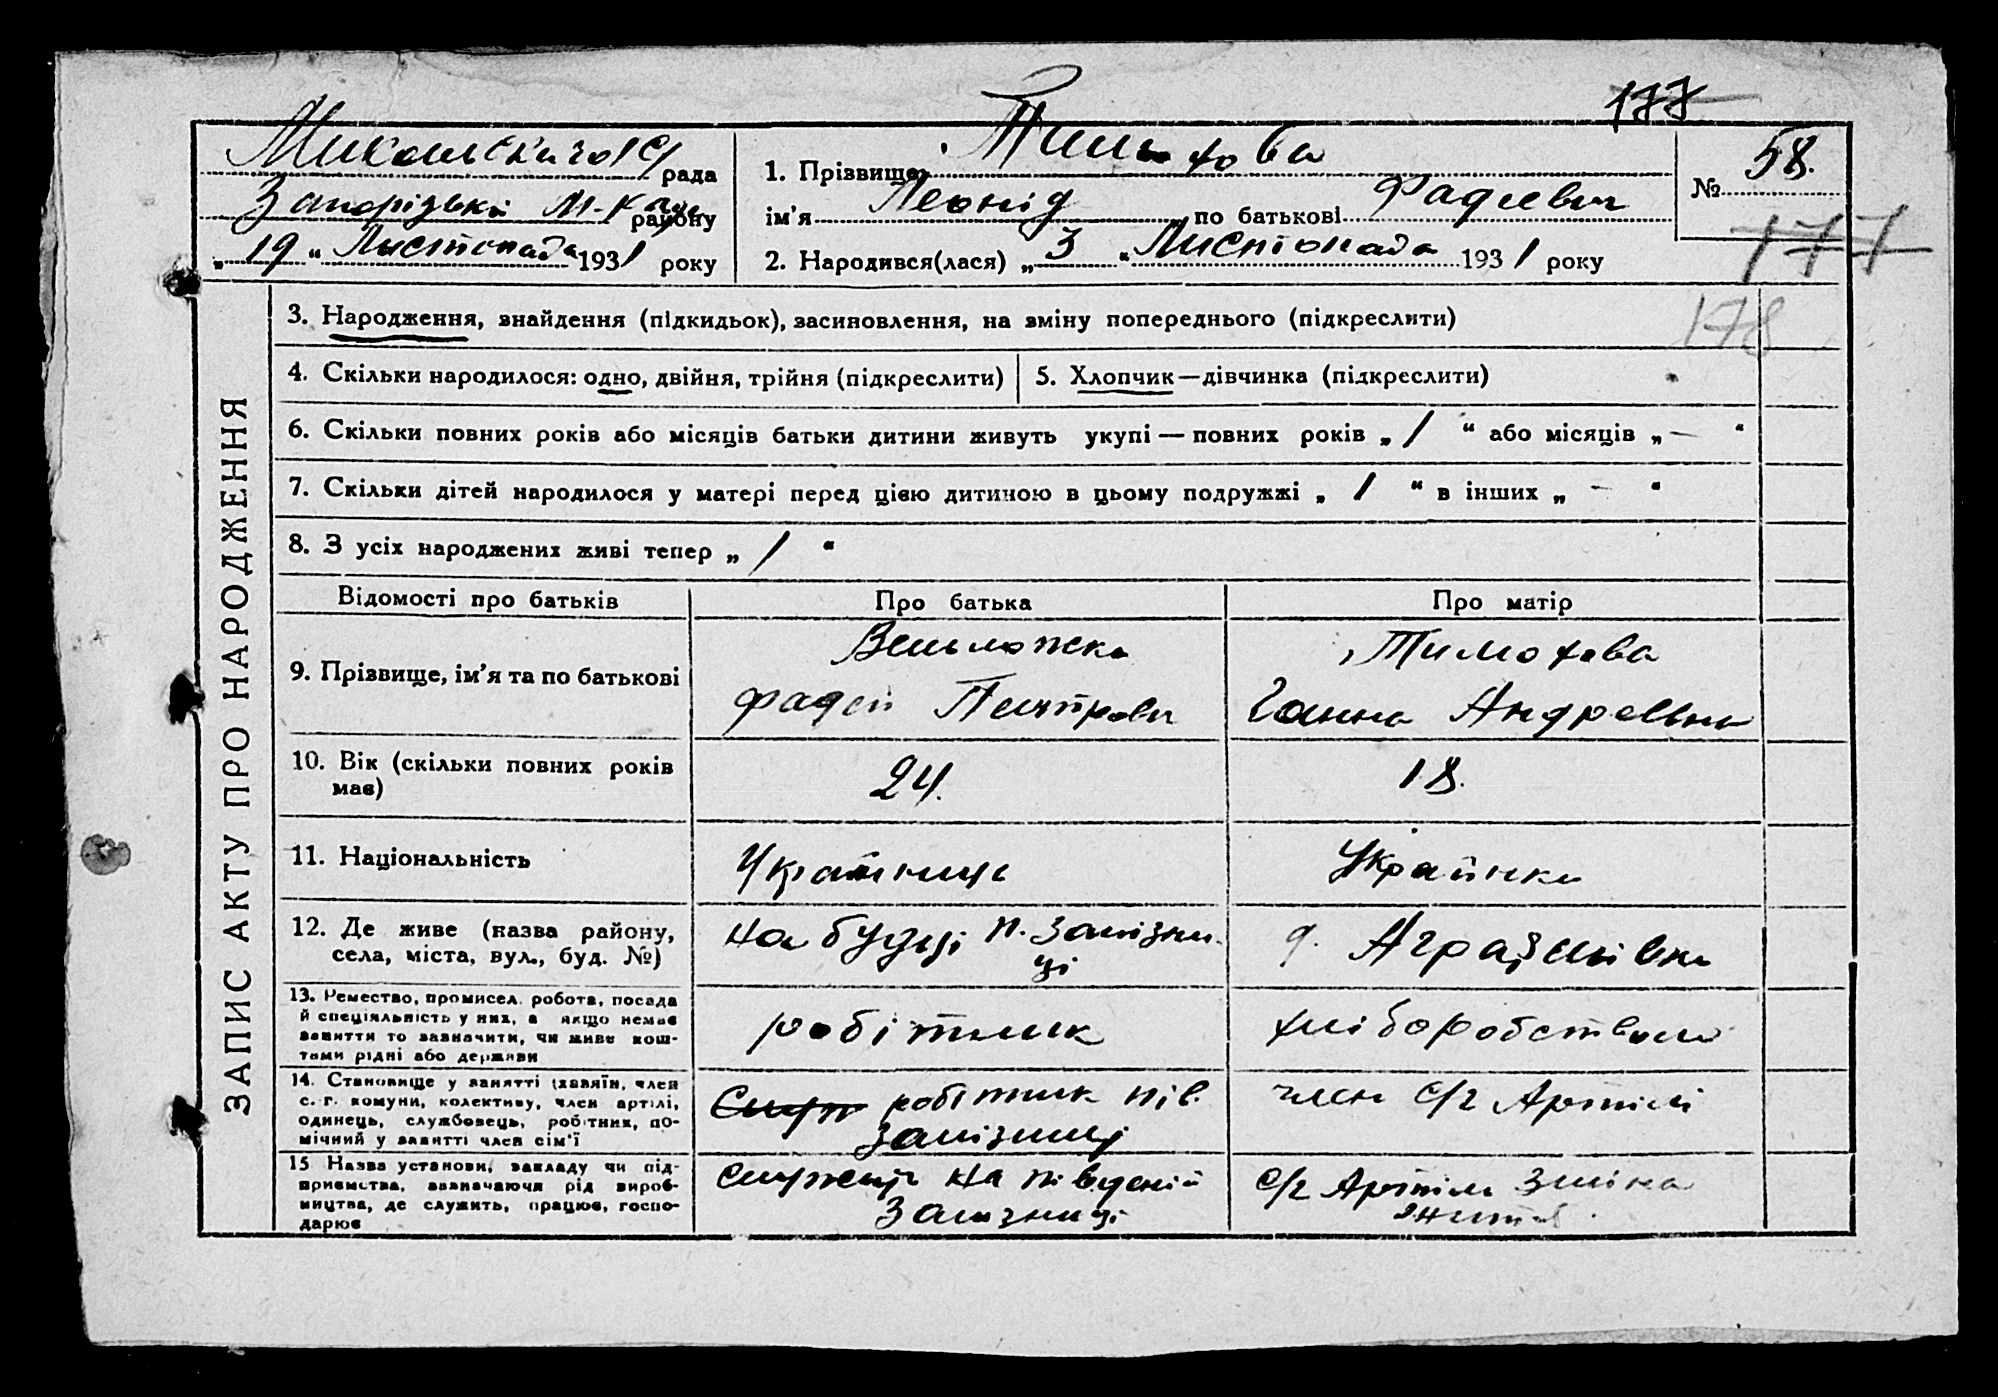 177
рада
Запорізької М-Ради району
„19“ Листопада 1931 року
1. Прізвище Тимохова
ім'я Леонід по батькові Фадієвич
2. Народився(лася) „3“ Листопада 1931 року
№ 58.
177
178
ЗАПИС АКТУ ПРО НАРОДЖЕННЯ
3. Народження, знайдення (підкидьок), засиновлення, на зміну попереднього (підкреслити)
4. Скільки народилося: одно, двійня, трійня (підкреслити)
5. Хлопчик—дівчинка (підкреслити)
6. Скільки повних років або місяців батьки дитини живуть укупі — повних років „1“ або місяців „—“
7. Скільки дітей народилося у матері перед цією дитиною в цьому подружжі „1“ в інших „—“
8. З усіх народжених живі тепер „1“
Відомості про батьків
Про батька
Про матір
9. Прізвище, ім'я та по батькові
Вельможко
Фадей
Тимохова
Ганна Андреевна
10. Вік (скільки повних років
має)
24.
18.
11. Національність
Українець
Українка
12. Де живе (назва району,
села, міста, вул., буд. №)
на будці п. Залізни-
ці
робітник
хліборобством
13. Ремество, промисел, робота, посада
й спеціяльність у них, а якщо немає
заняття то зазначити, чи живе кош-
тами рідні або держави
14. Становище у занятті (хазяїн, член
с.-г. комуни, колективу, член артілі,
одинець, службовець, робітник, по-
мічний у занятті член сім'ї
робітник Пів.
Залізниці
член с/г Артілі
15 Назва установи, закладу чи під-
приємства, зазначаючи рід вироб-
ництва, де служить, працює, госпо-
дарює
служить на південій
Залізниці
с/г Артіль